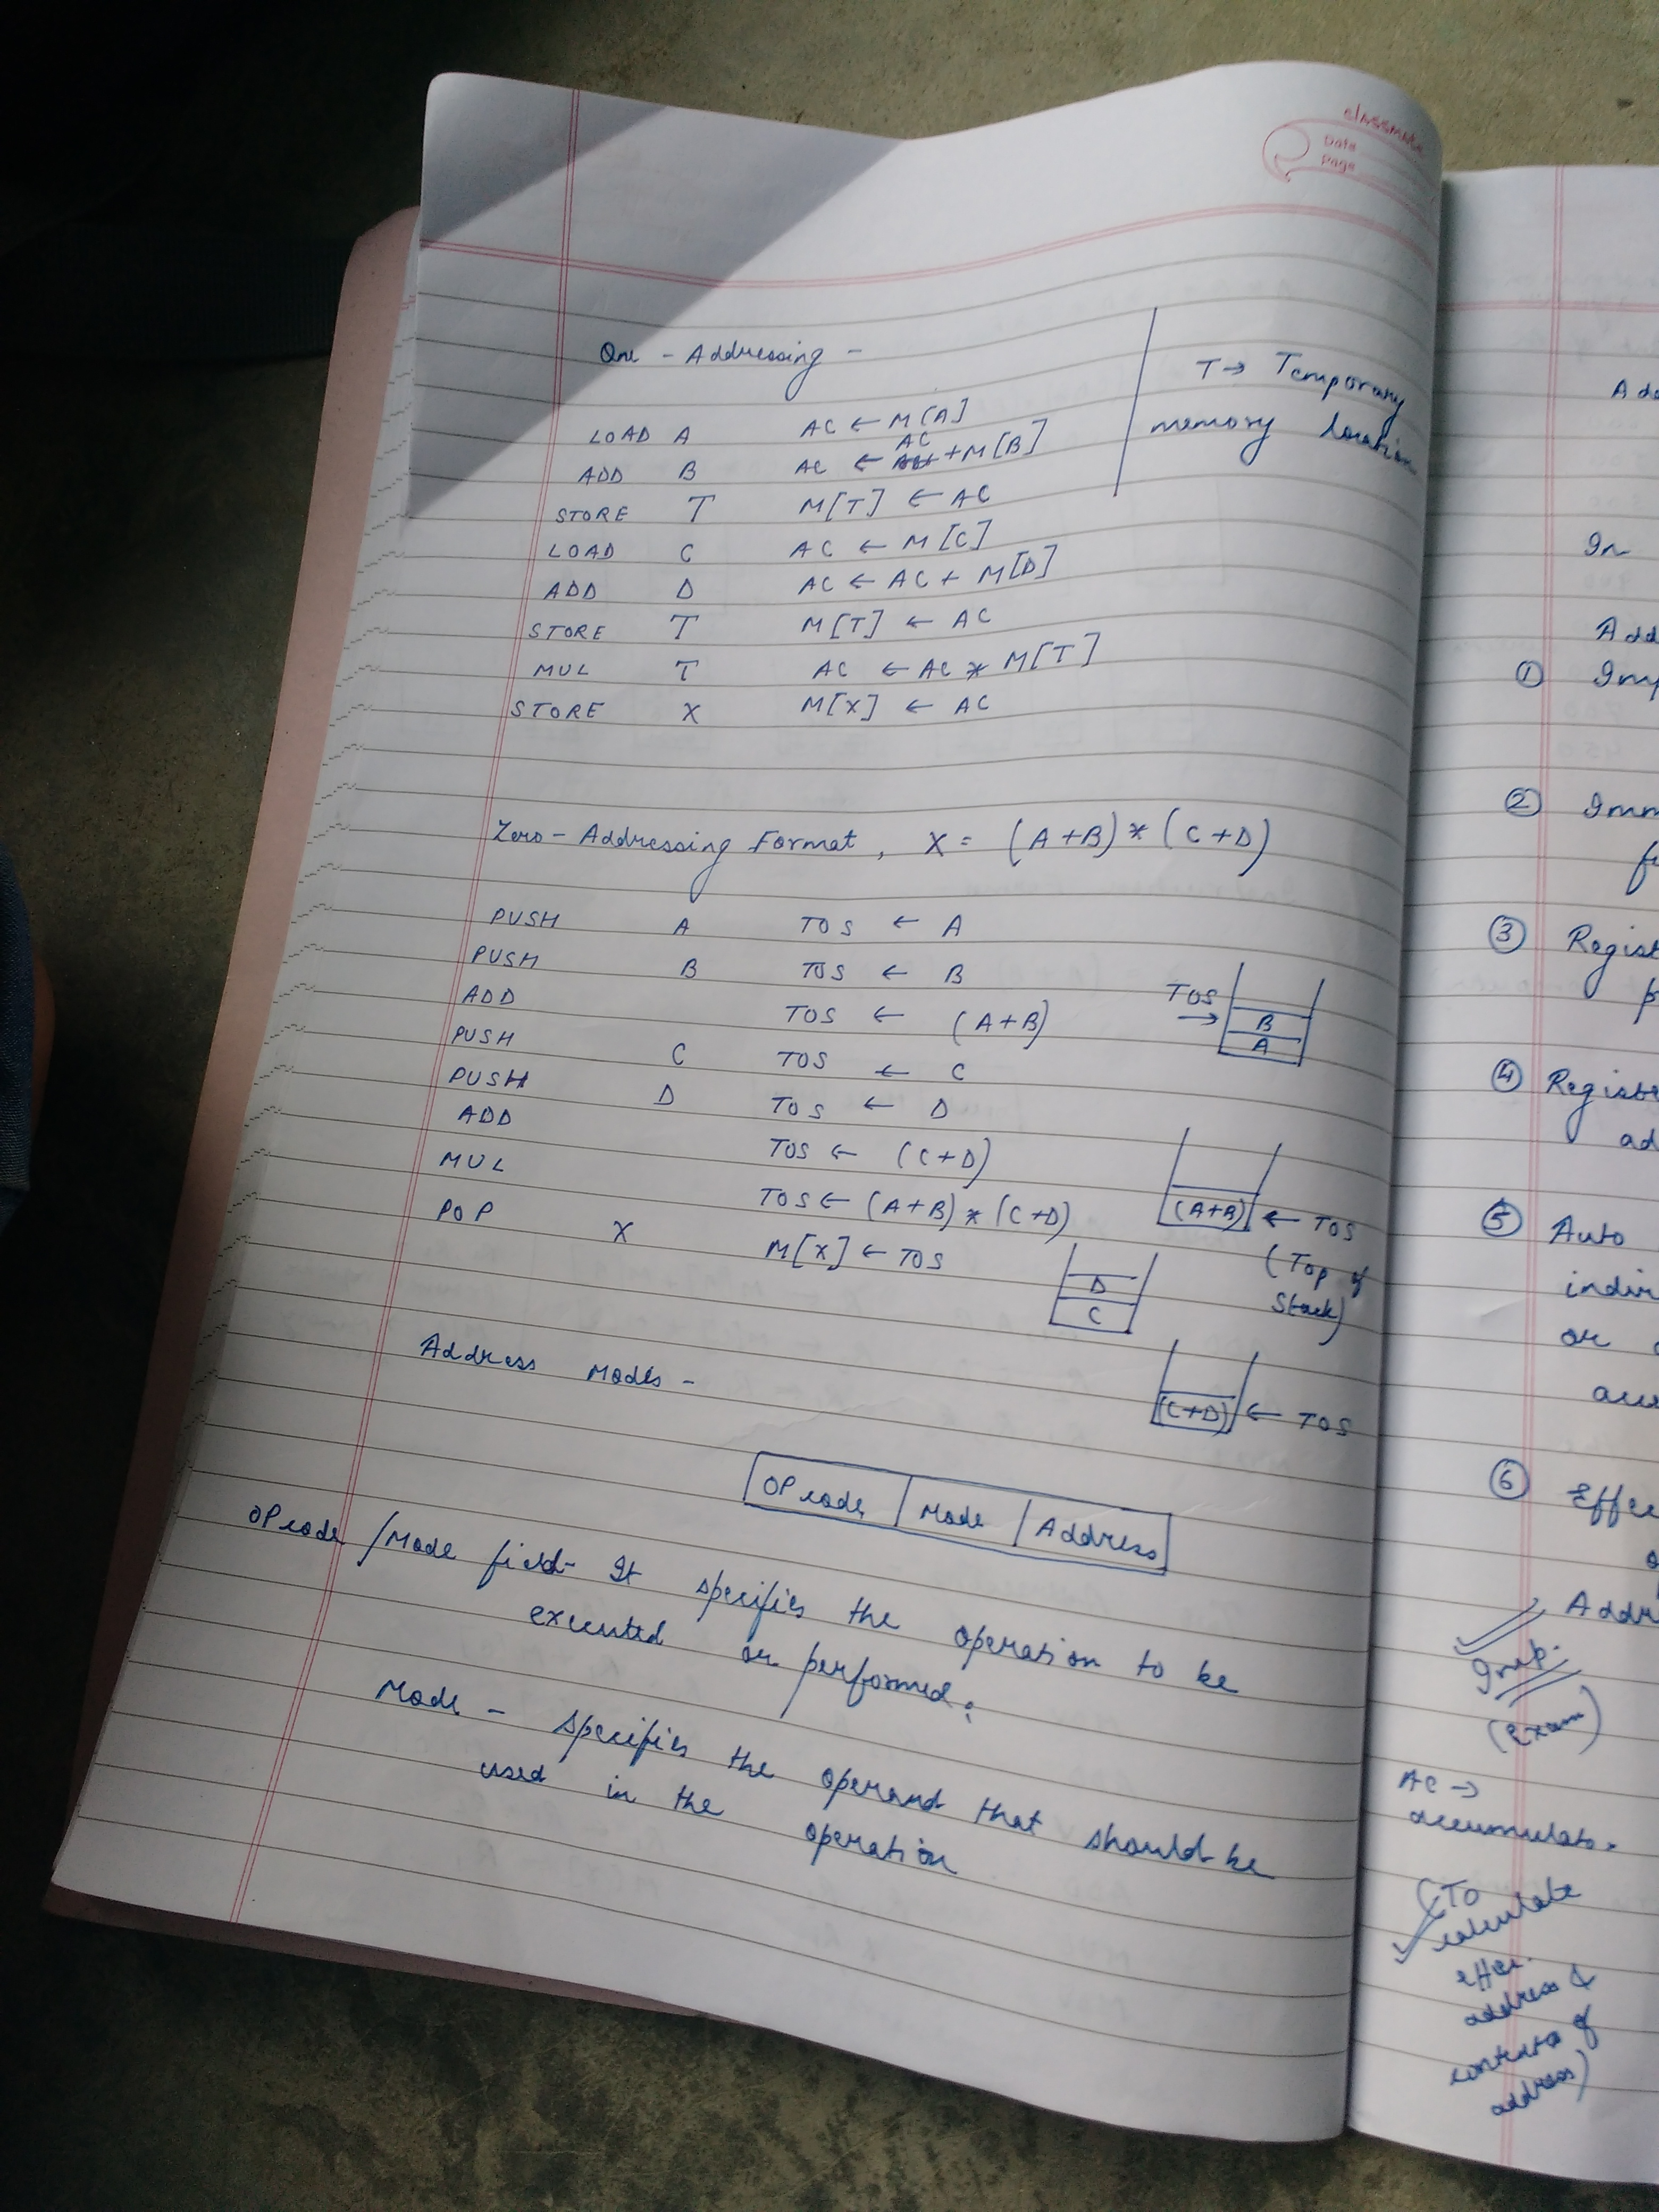 classmate
Date
Page
One - Addressing -
T → Temporary
memory location
LOAD A AC ← M[A]
AC
ADD B AC ← +M[B]
STORE T M[T] ← AC
LOAD C AC ← M[C]
ADD D AC ← AC + M[D]
STORE T M[T] ← AC
MUL T AC ← AC * M[T]
STORE X M[X] ← AC
Zero - Addressing Format, X = (A+B) * (C+D)
PUSH A TOS ← A
PUSH B TOS ← B
ADD TOS ← (A+B)
PUSH C TOS ← C
PUSH D TOS ← D
ADD TOS ← (C+D)
MUL TOS ← (A+B) * (C+D)
POP X M[X] ← TOS
TOS →
B
A
(A+B) ← TOS
(Top of
Stack)
D
C
(C+D) ← TOS
Address Modes -
OPcode | Mode | Address
OPcode / Mode field - It specifies the operation to be
executed or performed.
Mode - specifies the operand that should be
used in the operation
In
①
②
③ Regist
④ Registe
ad
⑤ Auto
indir
or
⑥ Effec
Addr
Imp.
(Exam)
AC →
accumulator
(To
calculate
effec.
address &
contents of
address)